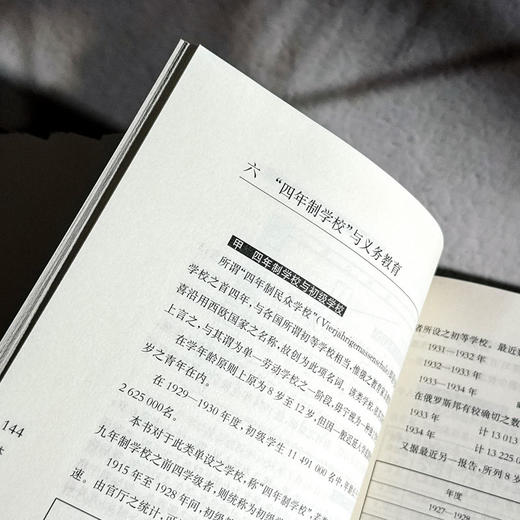 六 “四年制学校”与义务教育
甲 四年制学校与初级学校
所谓“四年制民众学校”(Vierjährige
学校之首四年,与各国所谓初等学校相当,惟俄之教育
喜沿用西欧国家之名称,故创为此项名词。该类学校,
上言之,与其谓为单一劳动学校之一阶段,毋宁视为一种
在学年龄原则上原为8岁至12岁,但因一般
岁之青年在内。
在1929—1930年度,初级学生11 491 000名中,年
2 625 000名。
本书对于此类单设之学校,称“四年制学校”,
九年制学校之前四学级者,则统称为初级学
1915年至1928年间,初级
速。由官厅之统计,
144
者所设之初等学校。最近
1931—1932年
1932—1933年
1933—1934年
在俄罗斯邦有较确切之数
1933年 计13 013
1934年 计13 225 0
又据最近另一报告,所列8岁
年度
1927—1928